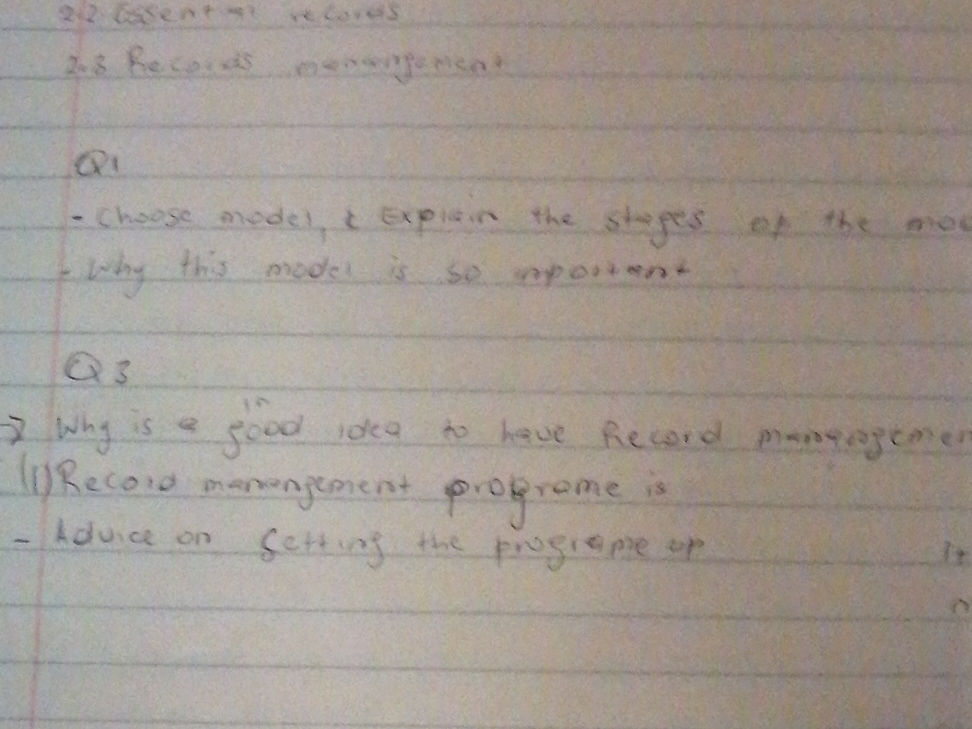 2.2 Essential records
2.3 Records manangement
Q1
- Choose model, & Explain the stages of the mod
- Why this model is so mportant
Q3
→ Why is a good idea to have Record manangemen
(1) Record manangement programe is
- Advice on setting the programe up